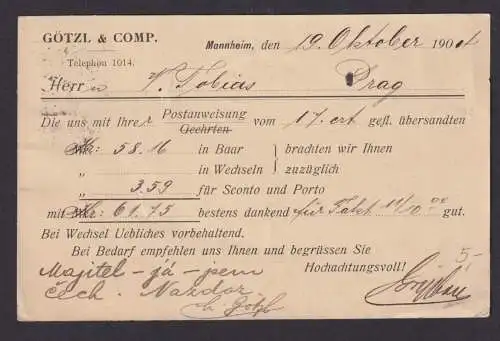 GÖTZL & COMP.
Mannheim, den 19. Oktober 1904
Telephon 1014.
Herrn V. Tobias Prag
Postanweisung
Die uns mit Ihrer Geehrten vom 17. crt gefl. übersandten
Kr: 58.16 in Baar brachten wir Ihnen
„ in Wechseln zuzüglich
„ 3.59 für Sconto und Porto
mit Kr: 61.75 bestens dankend für Fakt 11/10 gut.
Bei Wechsel Uebliches vorbehalten.
Bei Bedarf empfehlen uns Ihnen und begrüssen Sie
Hochachtungsvoll! 5,-
Majitel - já - jsem
čech. Nazdar
Götzl